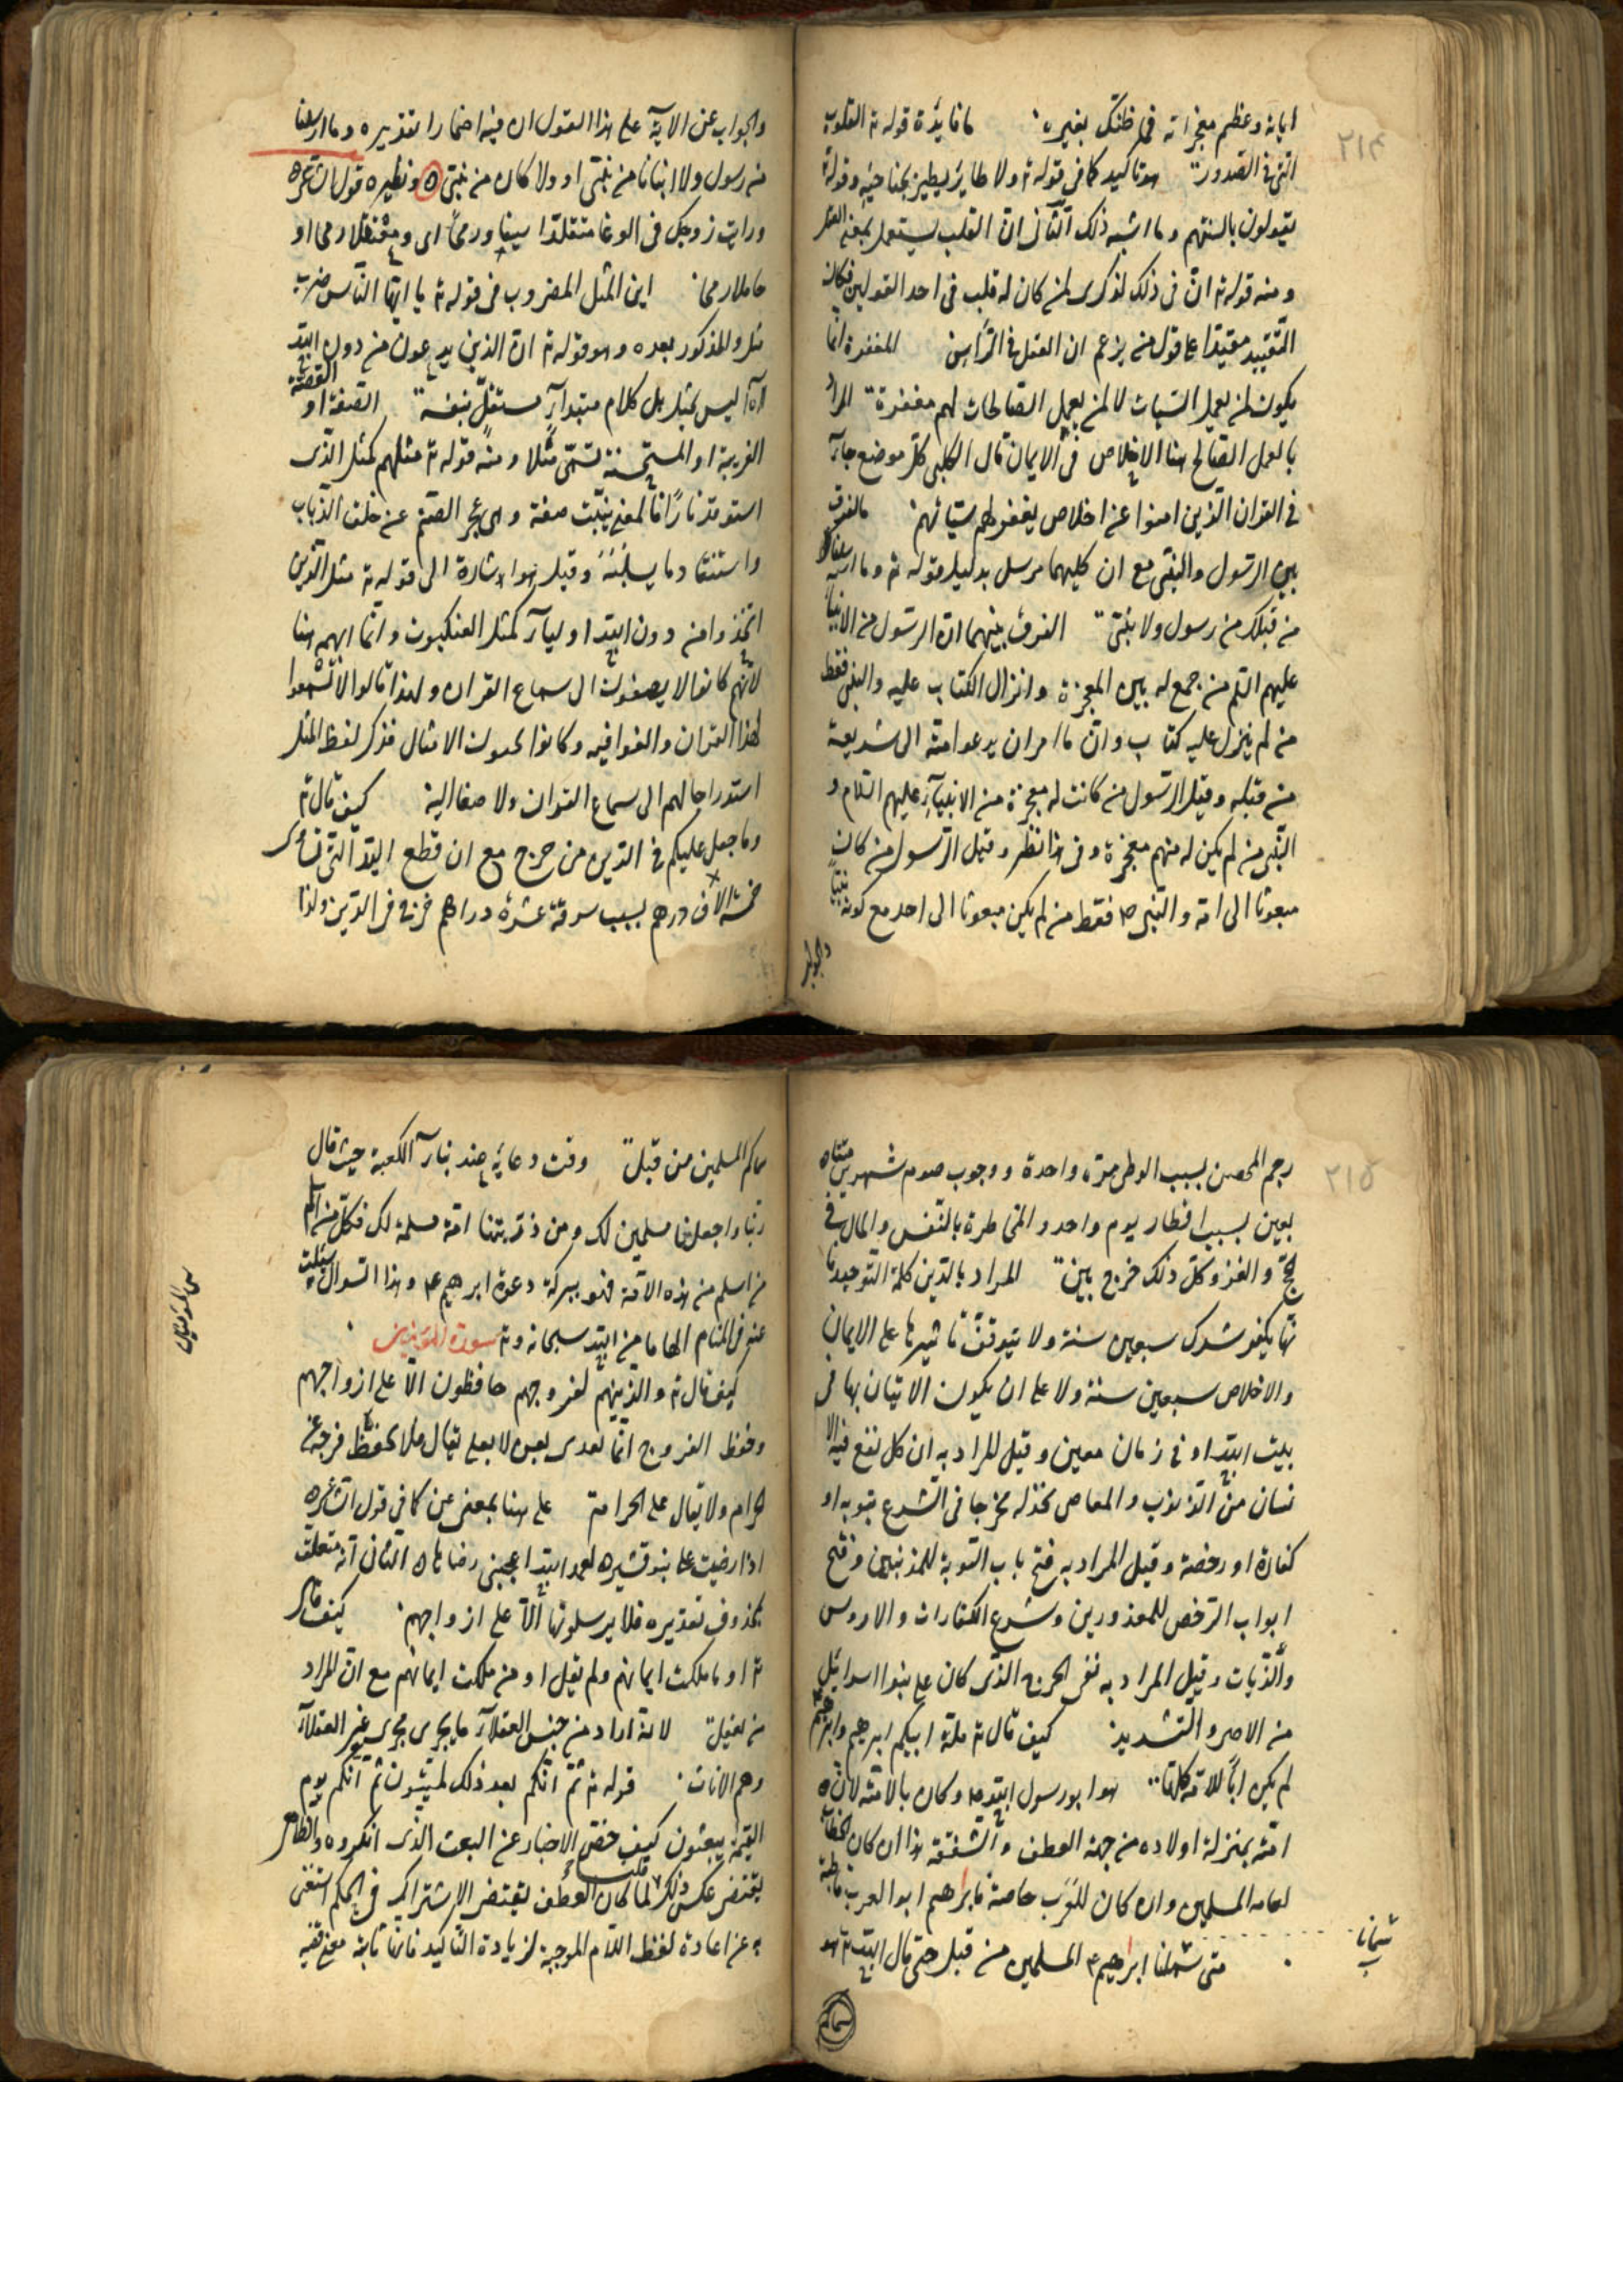 ٢١٤
اياته وعظم معجزاته فما ظنك بغيره ما فائدة قوله تع القلوب
التى فى الصدور هو تاكيد كما فى قوله تع ولا طاير يطير بجناحيه وقوله
يقولون بالسنتهم وما اشبه ذلك الثانى ان القلب يستعمل بمعنى العقل
ومنه قوله تع ان فى ذلك لذكرى لمن كان له قلب فى احد القولين فكان
التقييد مفيدا على قول من يزعم ان العقل فى الراس المغفرة انما
يكون لمن يعمل السيات لا لمن يعمل الصالحات لهم مغفرة المراد
بالعمل الصالح هنا الاخلاص فى الايمان قال الكلبى كل موضع جاء
فى القران الذين امنوا عن اخلاص يغفر لهم سيئاتهم ما الفرق
بين الرسول والنبى مع ان كليهما مرسل بدليل قوله تع وما ارسلنا
من قبلك من رسول ولا نبى الفرق بينهما ان الرسول من الانبياء
عليهم السلم من جمع له بين المعجزة وانزال الكتاب عليه والنبى فقط
من لم ينزل عليه كتاب وانما امر ان يدعو امته الى شريعة
من قبله وقيل الرسول من كانت له معجزة من الانبياء عليهم السلام و
النبى من لم يكن له منهم معجزة وفى هذا نظر وقيل الرسول من كان
مبعوثا الى امة والنبى ص فقط من لم يكن مبعوثا الى احد مع كونه نبيا
والجواب
والجواب عن الاية على هذا القول ان فيه اضمارا تقديره وما ارسلنا
من رسول ولا انبانا من نبى او ولا كان من نبى ونظيره قول الشاعر
ورايت زوجك فى الوغا متقلدا سيفا ورمحا اى ومعتقلا رمحا او
حاملا رمحا اين المثل المضروب فى قوله تع يا ايها الناس ضرب
مثل والمذكور بعده وهو قوله تع ان الذين يدعون من دون الله
الآ ليس بمثل بل كلام مبتداء مستقل بنفسه الصفة او القصة
الغريبة او المستحسنة تسمى مثلا ومنه قوله تع مثلهم كمثل الذى
استوقد نارا فالمعنى يثبت صفة وهى عجز الصنم عن خلق الذباب
واستنقاد ما يسلبنه وقيل هو اشارة الى قوله تع مثل الذين
اتخذوا من دون الله اولياء كمثل العنكبوت وانما ابهم هنا
لانهم كانوا لا يصغون الى سماع القران ولهذا قالوا لا تسمعوا
لهذا القران والغوا فيه وكانوا يحبون الامثال فذكر لفظ المثل
استدراجا لهم الى سماع القران والاصغا اليه كيف قال تع
وما جعل عليكم فى الدين من حرج مع ان قطع اليد التى تساوى
خمسة الاف درهم بسبب سرقة عشرة دراهم حرج فى الدين ولذا
٢١٥
رجم المحصن بسبب الوطى مرة واحدة ووجوب صوم شهرين متتا
بعين بسبب افطار يوم واحد والمخاطرة بالنفس والمال فى
الحج والغزو كل ذلك حرج بين المراد بالدين كلمة التوحيد فا
نها يكفر شرك سبعين سنة ولا يتوقف تاثيرها على الايمان
والاخلاص سبعين سنة ولا على ان يكون الاتيان بها فى
بيت الله او فى زمان معين وقيل المراد به ان كل نفع فيه الا
نسان من الذنوب والمعاصى نجد له مخرجا فى الشرع بتوبة او
كفارة او رخصة وقيل المراد به فتح باب التوبة للمذنبين وفتح
ابواب الترخص للمعذورين وشرع الكفارات والاروش
والديات وقيل المراد به نفى الحرج الذى كان على بنوا اسرائيل
من الاصر والتشديد كيف قال تع ملة ابيكم ابرهيم وابرهيم
لم يكن ابا للامة كلها هو ابو رسول الله ص وكان بالامته لان
امته بمنزلة اولاده من جهة العطف والشفقة هذا ان كان الخطاب
لعامة المسلمين وان كان للعرب خاصة فابرهيم ابو العرب قاطبة
متى سمانا ابرهيم ع المسلمين من قبل حتى قال الله تع هو
سمانا
سماكم
سماكم المسلمين من قبل وقت دعائه عند بناء الكعبة حيث قال
ربنا واجعلنا مسلمين لك ومن ذريتنا امة مسلمة لك فكل من اسلم
من اسلم من هذه الامة فهو ببركة دعوة ابرهيم ع وهذا السوال سئلت
عنه فى المنام الهاما من الله سبحانه وتع سورة المؤمنين
كيف قال تع والذينهم لفروجهم حافظون الا على ازواجهم
وحفظ الفروج انما تعدى بعن لا بعلى يقال فلان يحفظ فرجه عن
الحرام ولا يقال على الحرام على هنا بمعنى عن كما فى قول الشاعر
اذا رضيت على بنو قشير لعمر الله اعجبنى رضاها الثانى انه متعلق
بمحذوف تقديره فلا يرسلونها الا على ازواجهم كيف قال
تع او ما ملكت ايمانهم ولم يقل او من ملكت ايمانهم مع ان المراد
من يعقل لانه اراد من جنس العقلاء ما يجرى مجرى غير العقلاء
وهم الاناث قوله تع ثم انكم بعد ذلك لميتون ثم انكم يوم
القيمة يبعثون كيف خص الاخبار عن البعث الذى انكروه والظاهر
يقتضى عكس ذلك قلنا لما كان العطف يقتضى الاشتراك فى الحكم استغنى
به عن اعادة لفظ اللام الموجبة لزيادة التاكيد فانها ثابتة معنى
س المؤمنين